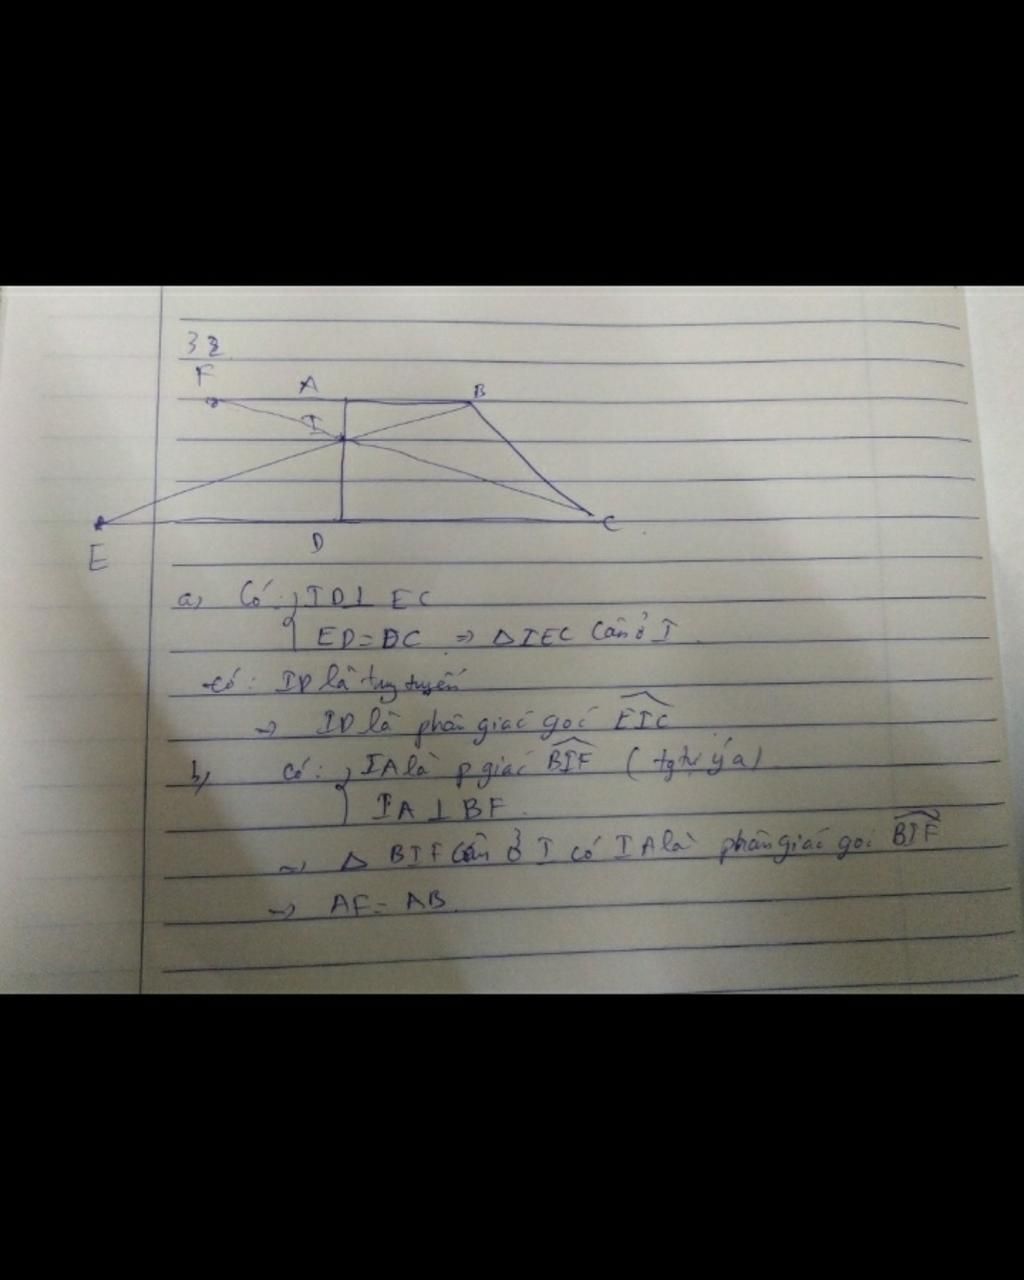 3
F A B
I
E D C
a) Có: ID ⊥ EC
ED = DC ⇒ Δ IEC cân ở I
có: ID là tuyến
→ ID là phân giác góc EIC
b) có: IA là p giác BIF (tg tự ý a)
IA ⊥ BF.
→ Δ BIF cân ở I có IA là phân giác góc BIF
→ AF = AB